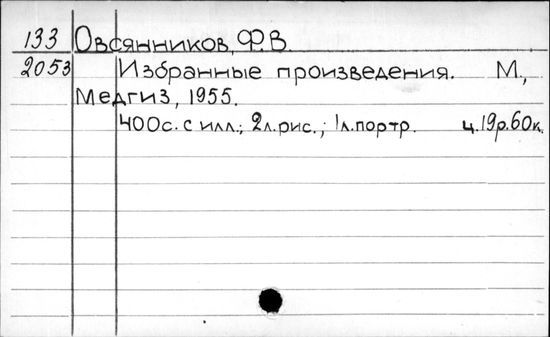 133 Овсянников, Ф.В.
2053 Избранные произведения. М.,
Медгиз, 1955.
400с. с илл.; 2л.рис.; 1л.портр. ц.19р.60к.